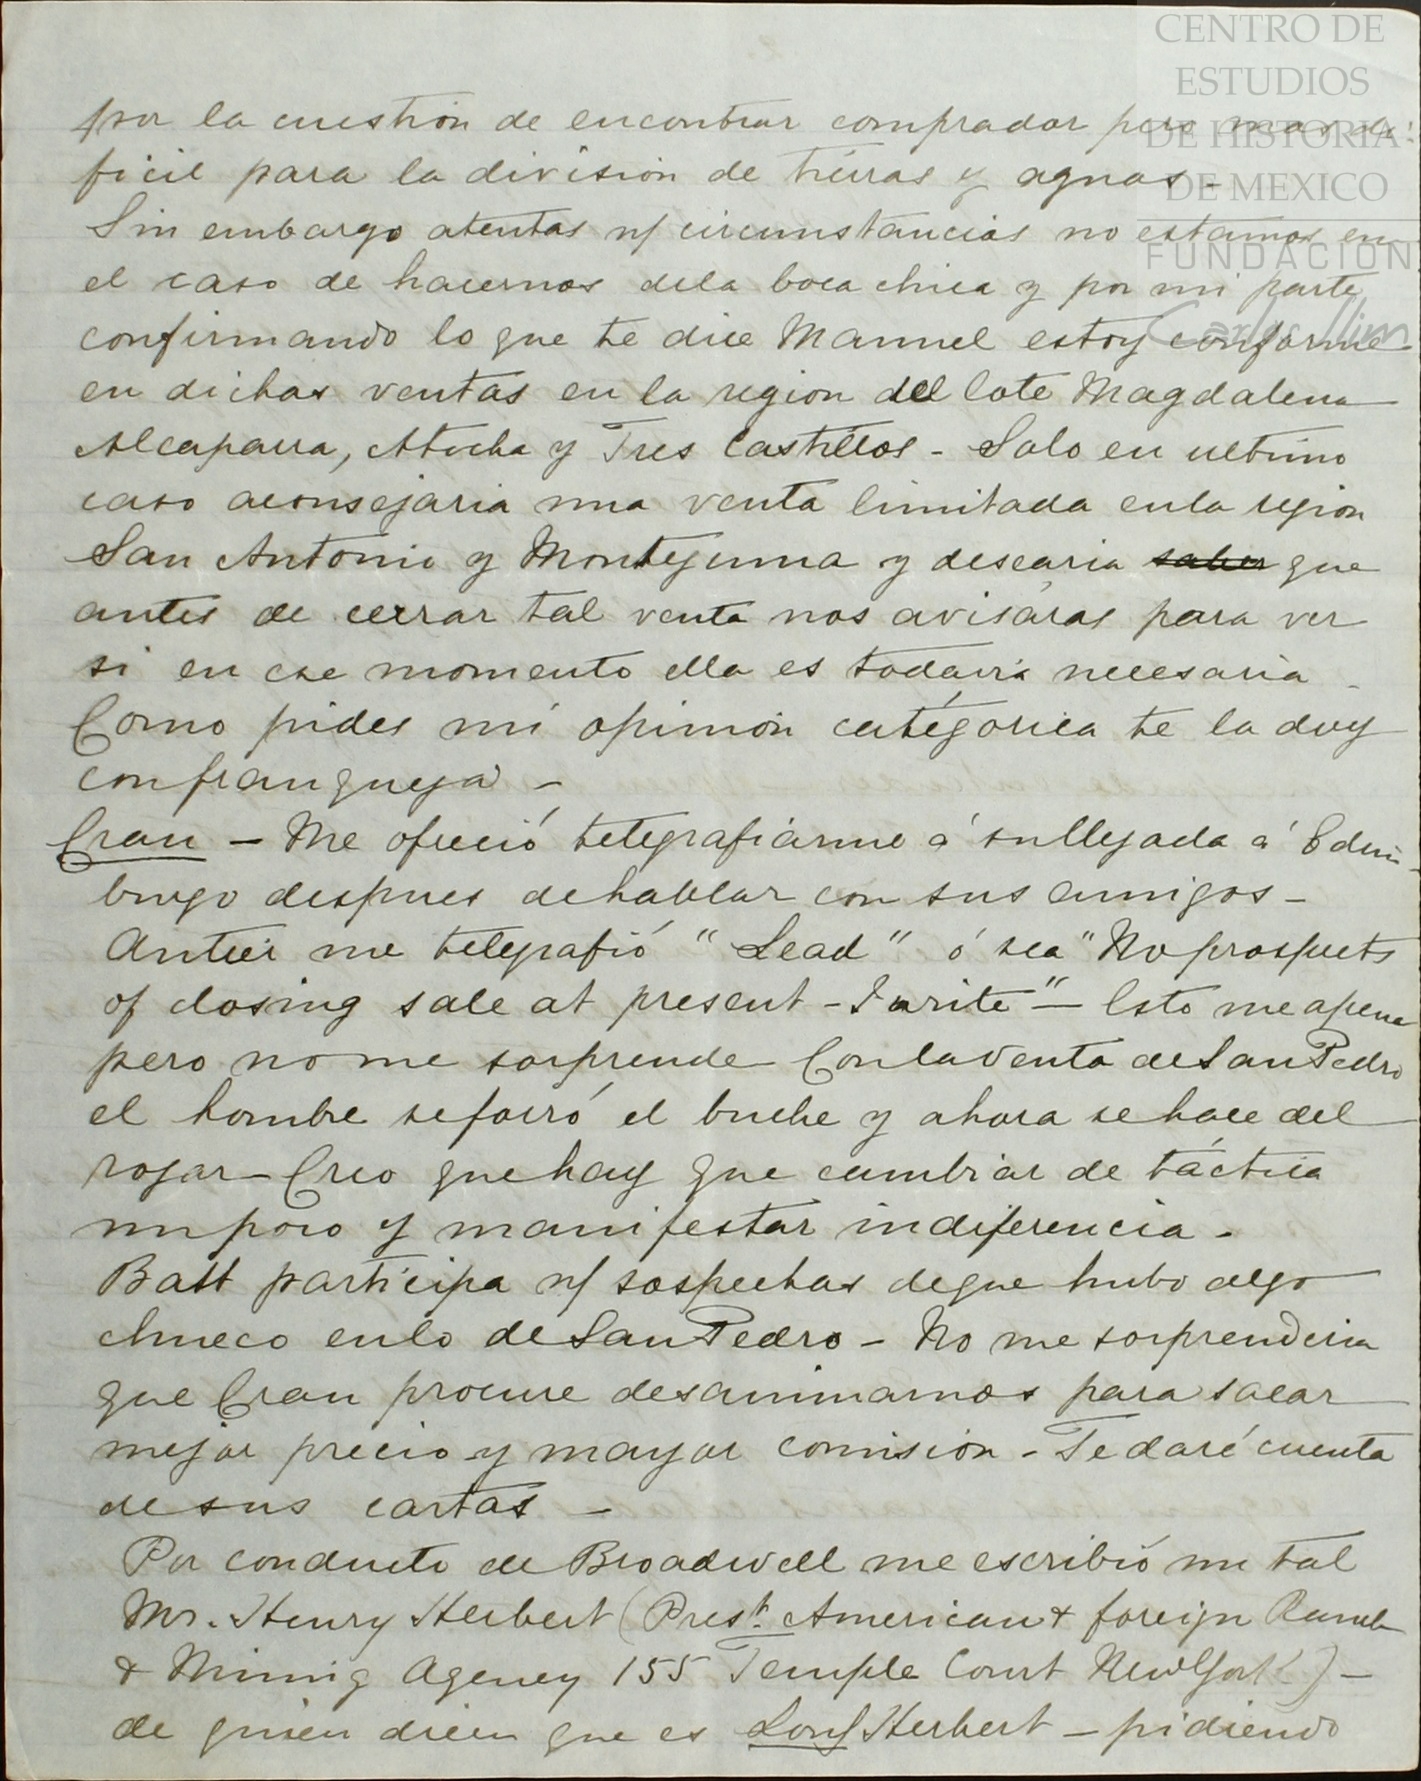 CENTRO DE
ESTUDIOS
DE HISTORIA
DE MEXICO
FUNDACION
Carlos Slim
por la cuestión de encontrar comprador pero mas di-
ficil para la división de tierras y aguas -
Sin embargo atentas n/ circunstancias no estamos en
el caso de hacernos dela boca chica y por mi parte
confirmando lo que te dice Manuel estoy conforme
en dichas ventas en la region del lote Magdalena
Alcaparra, Atocha y Tres Castillos - Solo en ultimo
caso aconsejaria una venta limitada enla region
San Antonio y Montezuma y desearia saber que
antes de cerrar tal venta nos avisáras para ver
si en ese momento ella es todavia necesaria -
Como pides mi opinión catégorica te la doy
con franqueza -
Cran - Me ofreció telegrafiarme á su llegada á Edim-
burgo despues de hablar con sus amigos -
Antier me telegrafió "Lead" ó sea "No prospects
of closing sale at present - I write" - Esto me apena
pero no me sorprende Con la venta de San Pedro
el hombre se forró el buche y ahora se hace del
rogar - Creo que hay que cambiar de táctica
un poco y manifestar indiferencia -
Batt participa n/ sospechas de que hubo algo
chueco en lo de San Pedro - No me sorprenderia
que Cran procure desanimarnos para sacar
mejor precio y mayor comisión - Te daré cuenta
de sus cartas -
Por conducto de Broadwell me escribió un tal
Mr. Henry Herbert (Prest. American & foreign Ranch
& Mining Agency 155 Temple Court New York) -
de quien dicen que es Lord Herbert - pidiendo